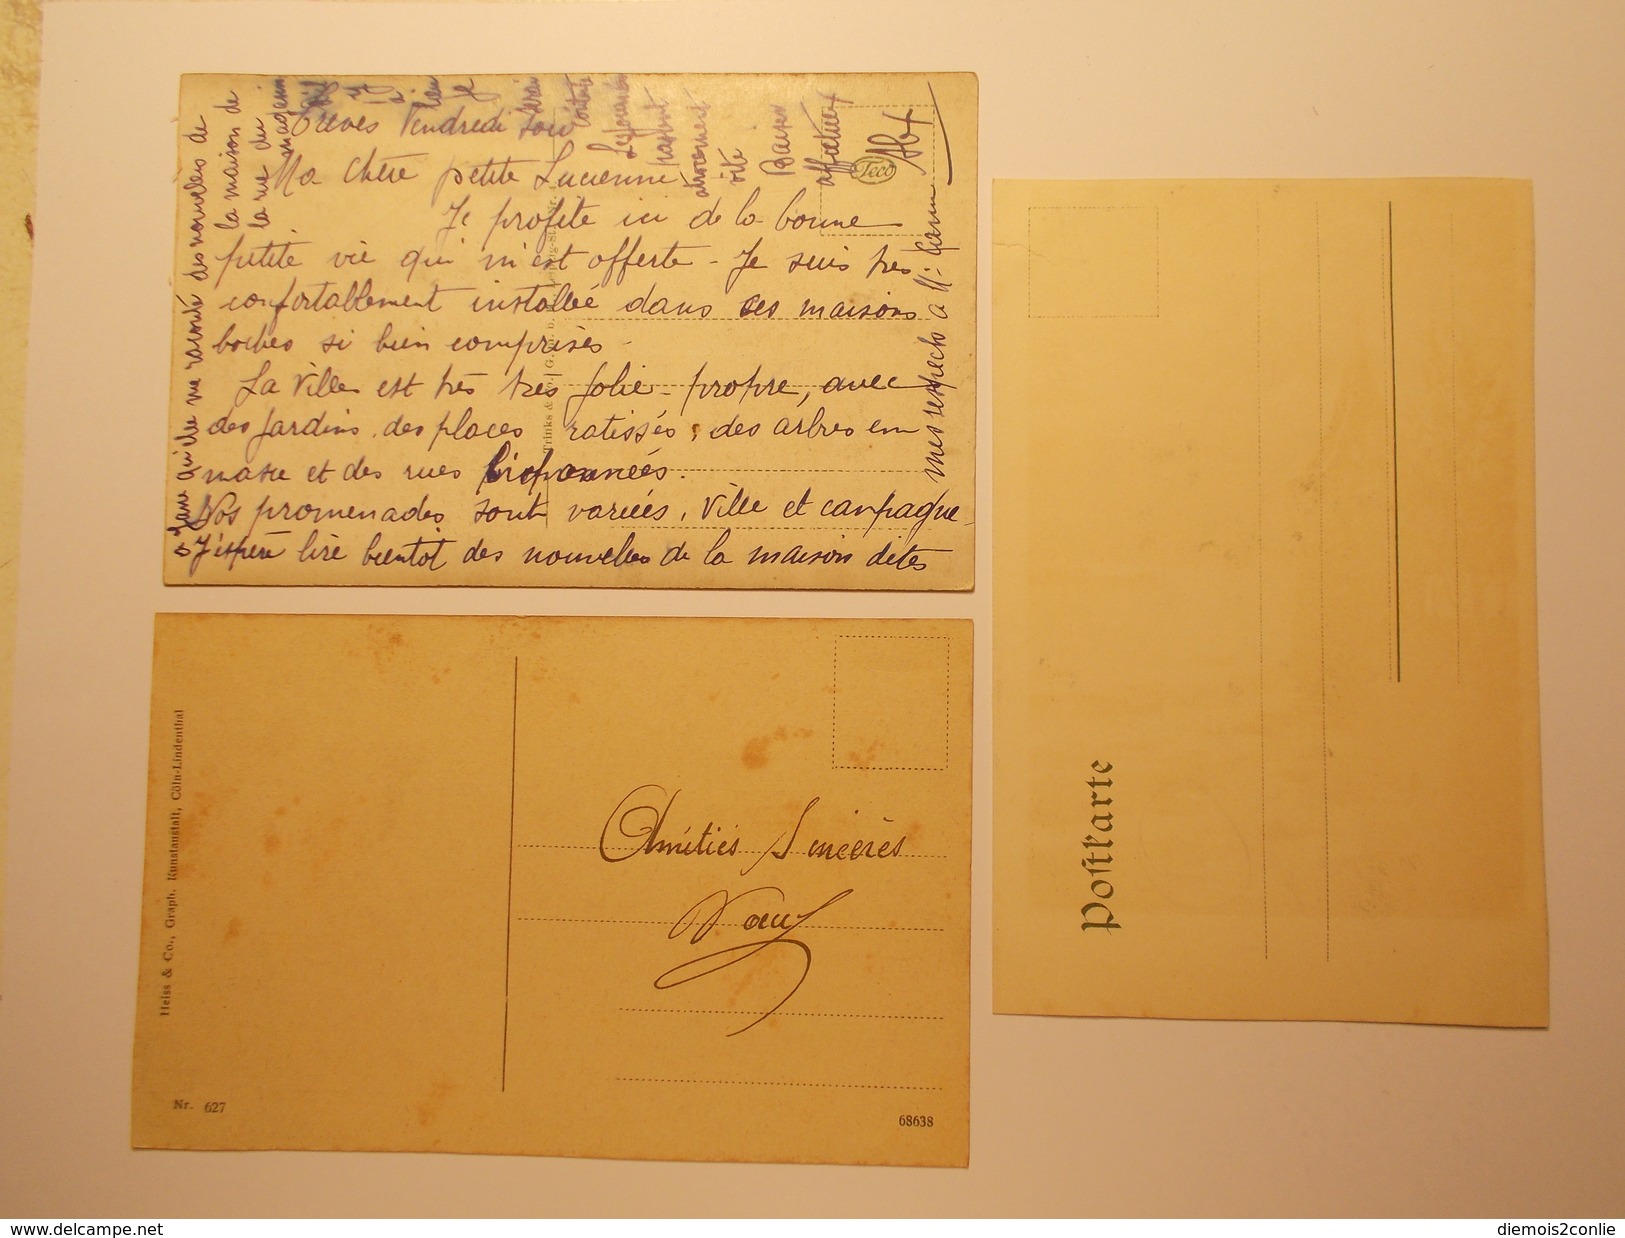 Trèves Vendredi soir
Ma chère petite Lucienne
Je profite ici de la bonne
petite vie qui m'est offerte - Je suis très
confortablement installée dans ces maisons
boches si bien comprises -
La Ville est très très jolie - propre, avec
des jardins, des places ratissés, des arbres en
masse et des rues
Nos promenades sont variées, Ville et campagne -
J'espère lire bientôt des nouvelles de la maison dites
à Jane qu'elle me raconte des nouvelles de
la maison de
la rue du
magasin
Le temps
passant
atrocement
vite
Baisers
affectueux
mes respects à M.
Teco
Trinks & Co. G. m. b. H. Leipzig
Heiss & Co., Graph. Kunstanstalt, Cöln-Lindenthal
Nr. 627
68638
Amitiés Sincères
Postkarte
www.delcampe.net
diemois2conlie